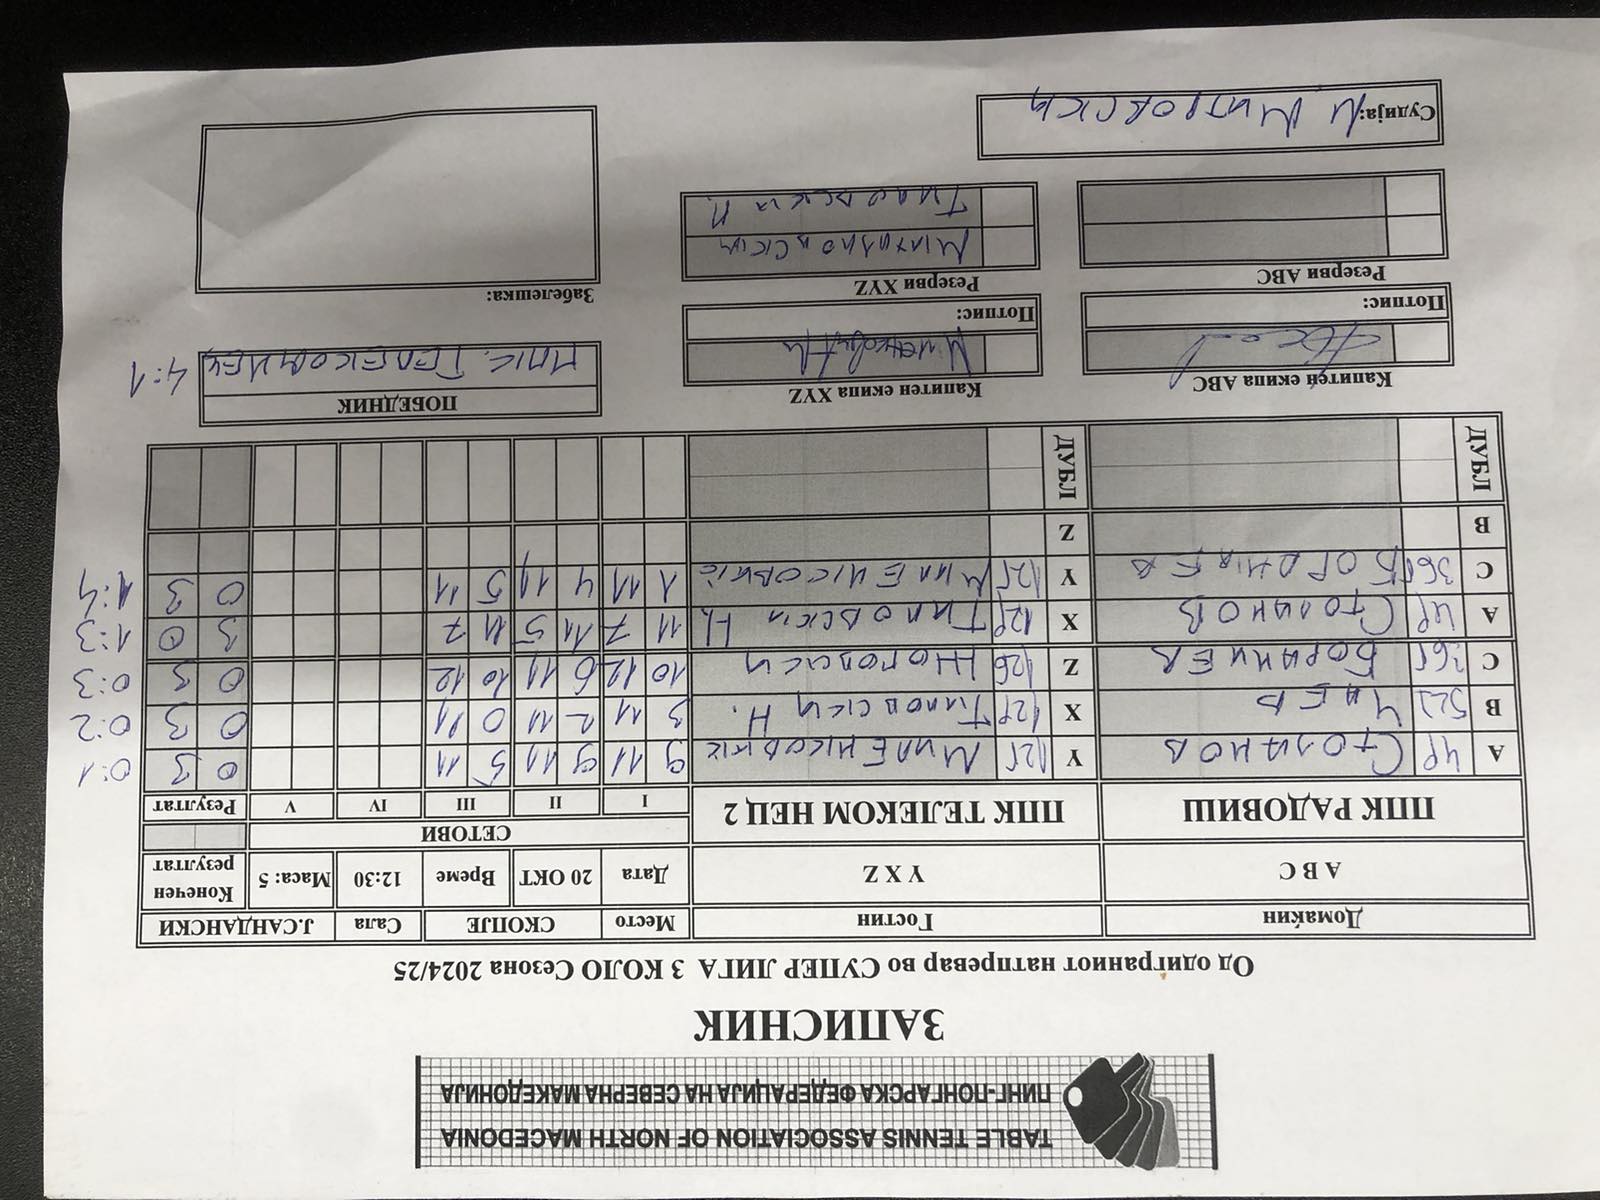 TABLE TENNIS ASSOCIATION OF NORTH MACEDONIA
ПИНГ-ПОНГАРСКА ФЕДЕРАЦИЈА НА СЕВЕРНА МАКЕДОНИЈА
ЗАПИСНИК
Од одиграниот натпревар во СУПЕР ЛИГА 3 КОЛО Сезона 2024/25
Домаќин Гостин Место СКОПЈЕ Сала Ј.САНДАНСКИ
A B C Y X Z Дата 20 ОКТ Време 12:30 Маса: 5 Конечен резултат
ППК РАДОВИШ ППК ТЕЛЕКОМ НЕЦ 2 СЕТОВИ
I II III IV V Резултат
A Столинов Y Миленковиќ 9 11 9 11 5 11 0 3 0:1
B Чиев X Гиновски Н. 3 11 2 11 0 11 0 3 0:2
C Z 10 12 6 11 10 12 0 3 0:3
A Столинов X Гиновски Н. 11 7 11 5 11 7 3 0 1:3
C Y Миленковиќ 1 11 4 11 5 11 0 3 1:4
B Z
ДУБЛ ДУБЛ
Капитен екипа ABC Капитен екипа XYZ ПОБЕДНИК
ППК. ТЕЛЕКОМ НЕЦ 4:1
Потпис: Потпис:
Резерви ABC Резерви XYZ Забелешка:
Судија: М Митровски